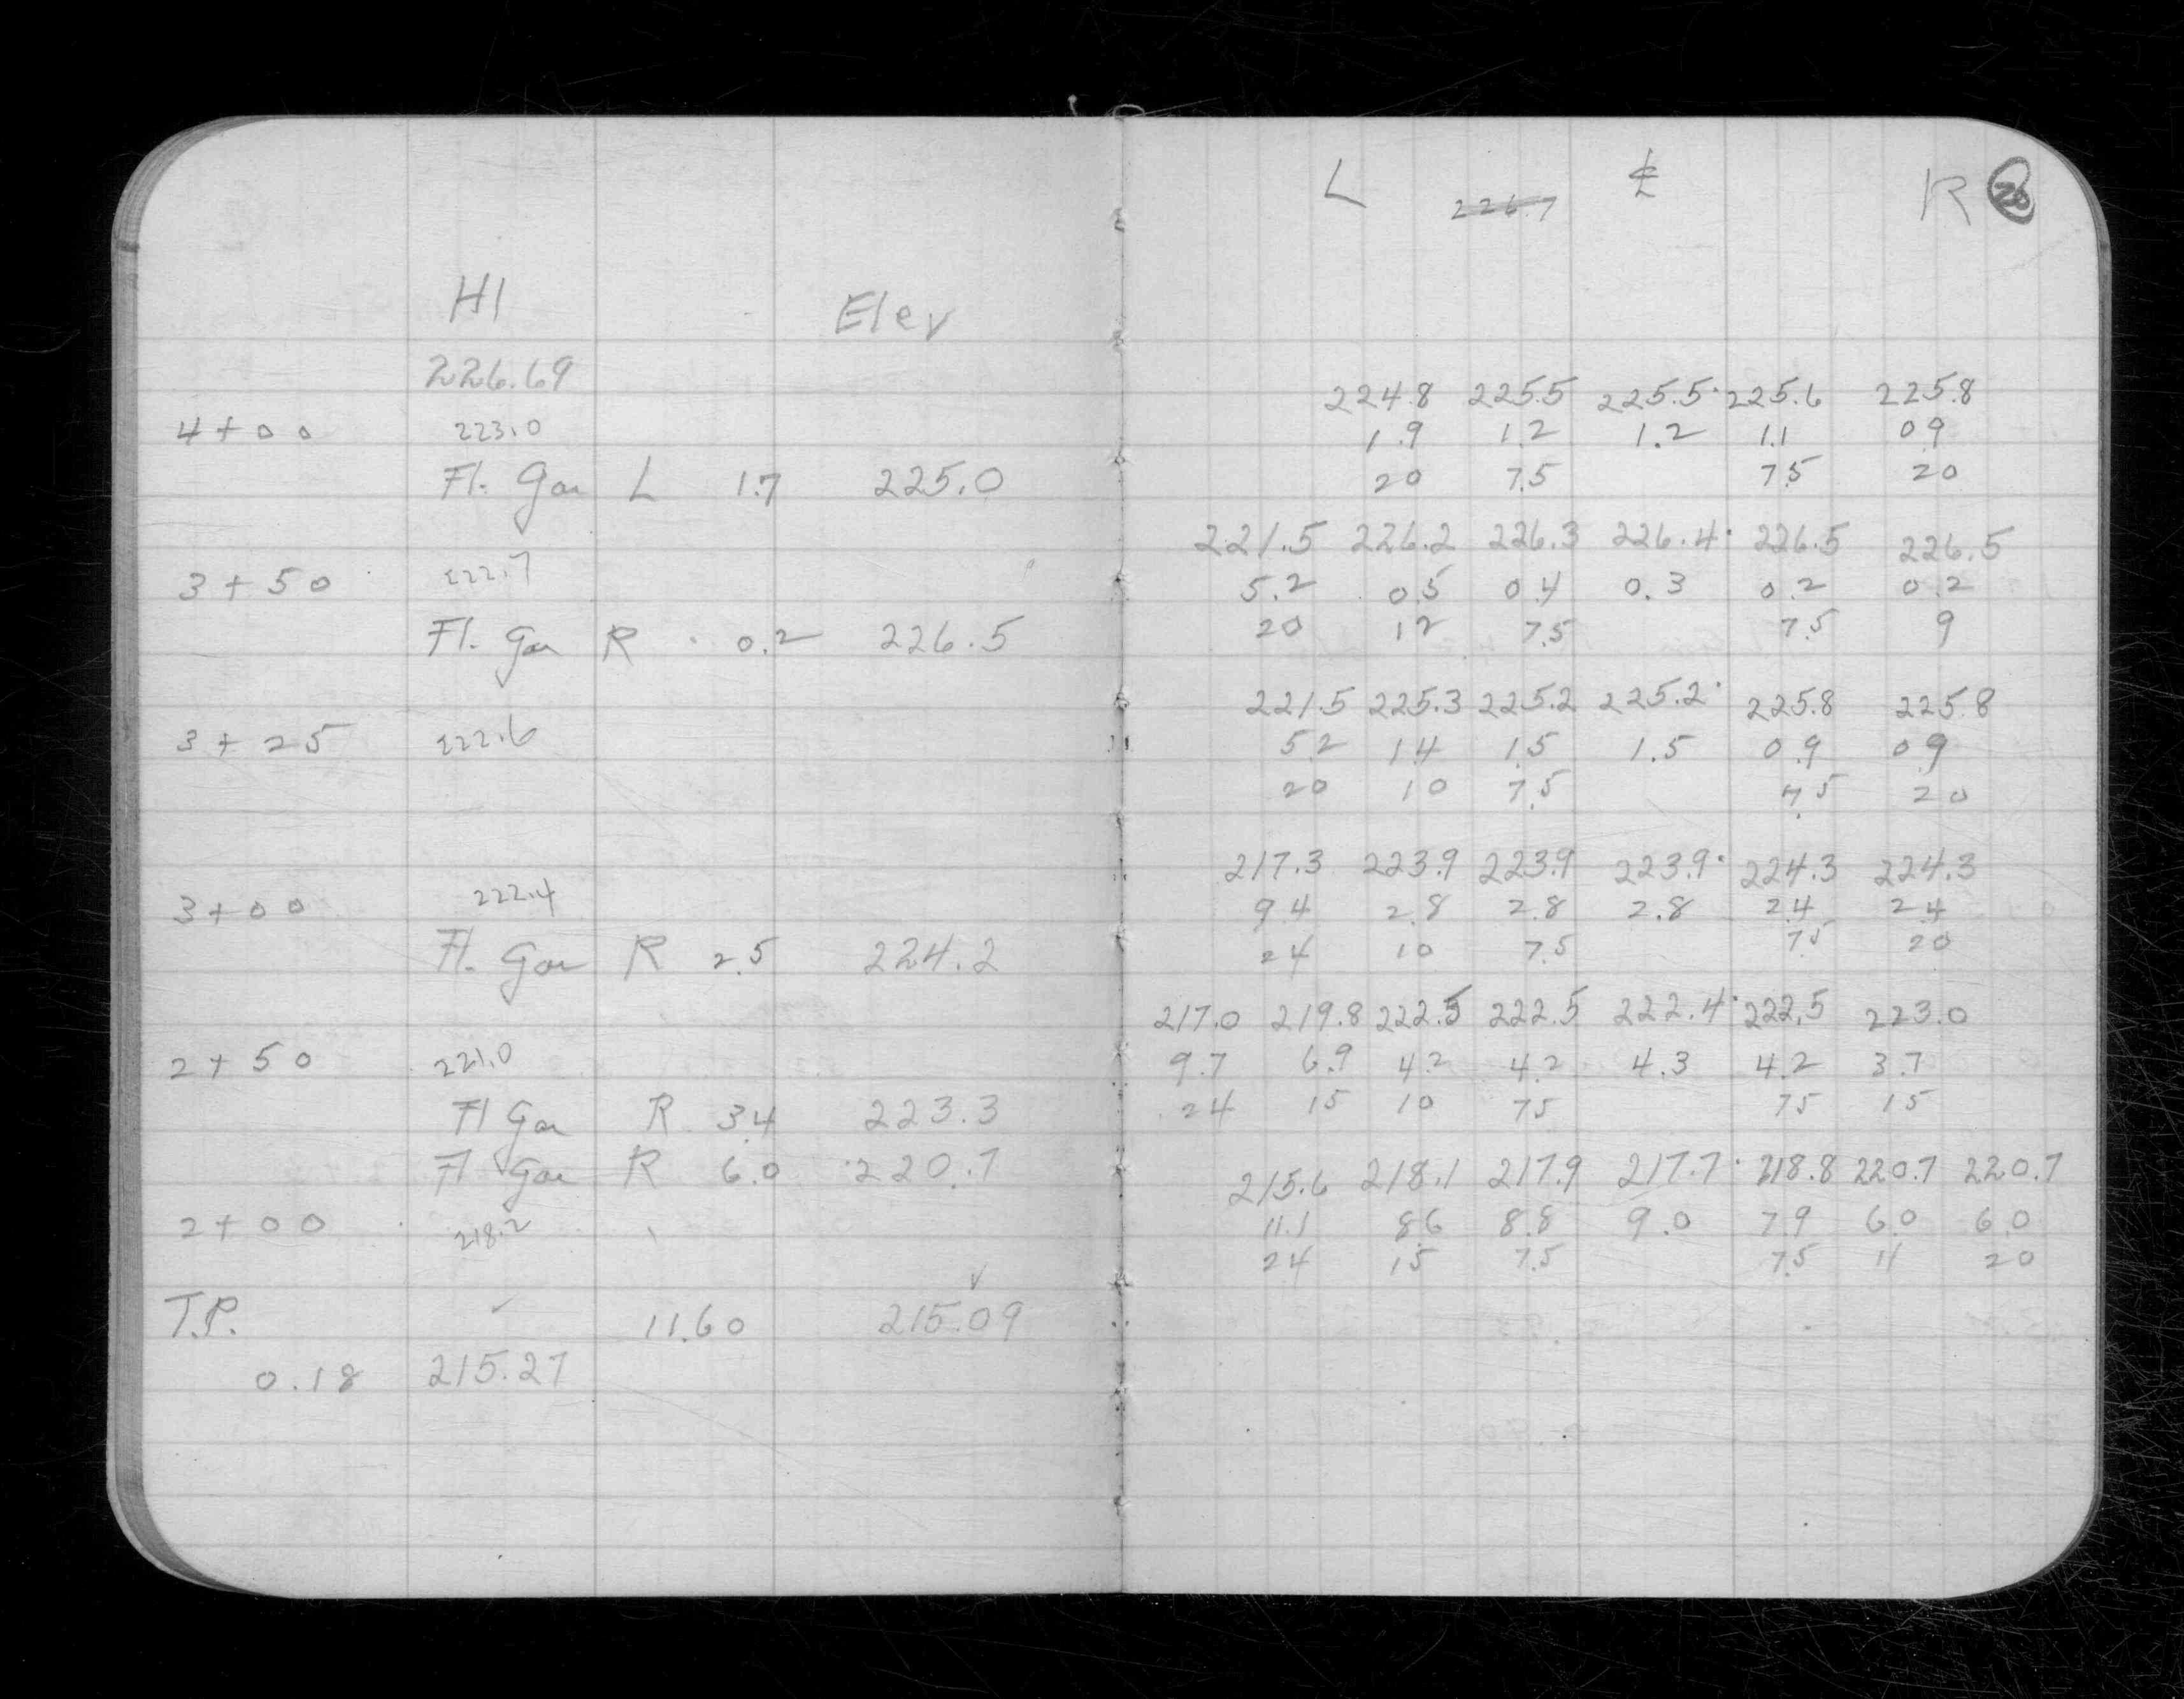 HI Elev
226.69
4+00 223.0
Fl. Gar L 1.7 225.0
3+50 222.7
Fl. Gar R 0.2 226.5
3+25 222.6
3+00 222.4
Fl. Gar R 2.5 224.2
2+50 221.0
Fl Gar R 3.4 223.3
Fl Gar R 6.0 220.7
2+00 218.2
T.P. 11.60 215.09
0.18 215.27
L 226.7 ℄ R 20
224.8 225.5 225.5 225.6 225.8
1.9 1.2 1.2 1.1 0.9
20 7.5 7.5 20
221.5 226.2 226.3 226.4 226.5 226.5
5.2 0.5 0.4 0.3 0.2 0.2
20 12 7.5 7.5 9
221.5 225.3 225.2 225.2 225.8 225.8
5.2 1.4 1.5 1.5 0.9 0.9
20 10 7.5 7.5 20
217.3 223.9 223.9 223.9 224.3 224.3
9.4 2.8 2.8 2.8 2.4 2.4
24 10 7.5 7.5 20
217.0 219.8 222.5 222.5 222.4 222.5 223.0
9.7 6.9 4.2 4.2 4.3 4.2 3.7
24 15 10 7.5 7.5 15
215.6 218.1 217.9 217.7 218.8 220.7 220.7
11.1 8.6 8.8 9.0 7.9 6.0 6.0
24 15 7.5 7.5 11 20